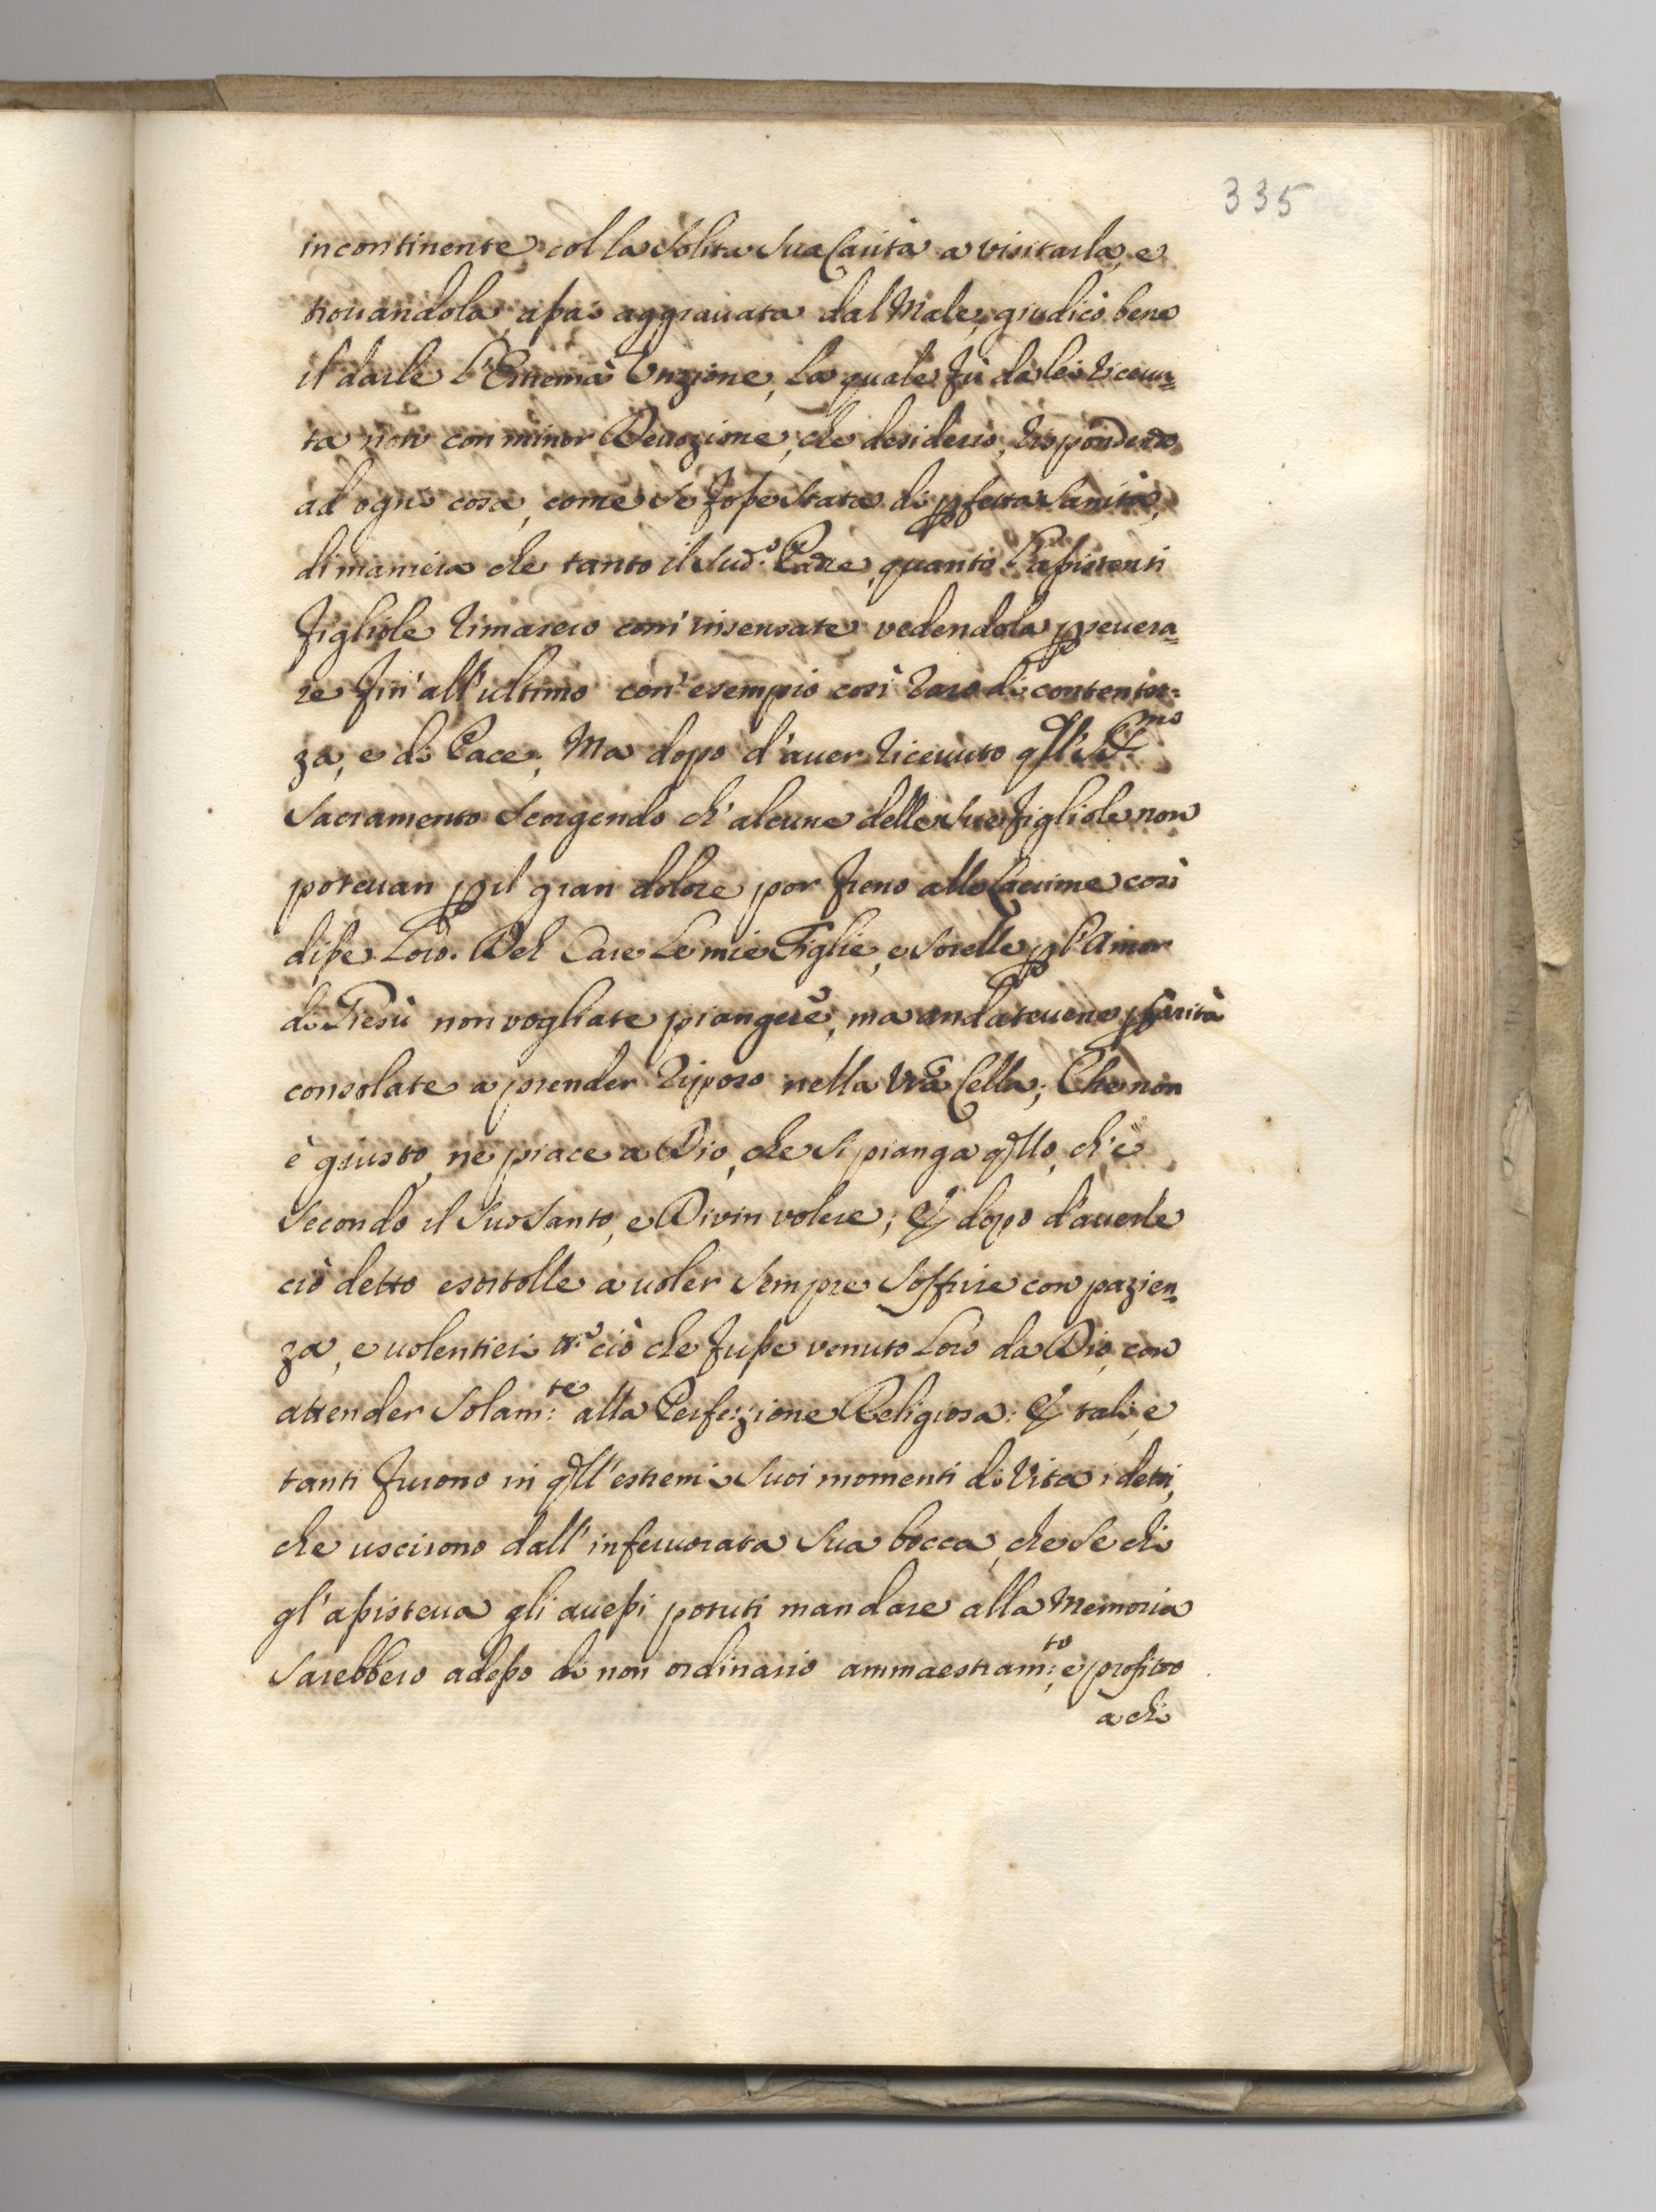 335
incontinente colla solita sua Carità a visitarla, e
trouandola assai aggrauata dal Male, giudicò bene
il darle l'Estrema Vnzione, la quale fù da lei riceuu=
ta non con minor Deuozione, che desiderio, rispondendo
ad ogni cosa, come se fosse stata di pfetta sanità,
di maniera che tanto il sud.º Padre, quanto l'assistenti
figliole rimasero com'insensate vedendola pseuera=
re fin'all'ultimo con'esempio così raro di contentez=
za, e di Pace; Ma dopo d'auer riceuuto qll'SS.mo
Sacramento scorgendo ch'alcune delle sue figliole non
poteuan p il gran dolore por freno alle lacrime così
disse loro. Deh Care le mie Figlie, e sorelle p l'Amor
di Giesù non vogliate piangere, ma andateuene p Carità
consolate a prender riposo nella Vrã Cella; Che non
è giusto, ne piace a Dio, che si pianga qllo, ch'è
secondo il suo santo, e Divin volere; & dopo d'auerle
ciò detto esortolle a uoler sempre soffrire con pazien=
za, e uolentieri tt.º ciò che fusse venuto loro da Dio, con
attender solam:te alla Perfezzione Religiosa: & tali, e
tanti furono in qll'estremi suoi momenti di Vita i detti,
che uscirono dall'inferuorata sua bocca, che se chi
gl'assisteua gli auessi potuti mandare alla Memoria
sarebbero adesso di non ordinario ammaestram:to, e profitto
a chi